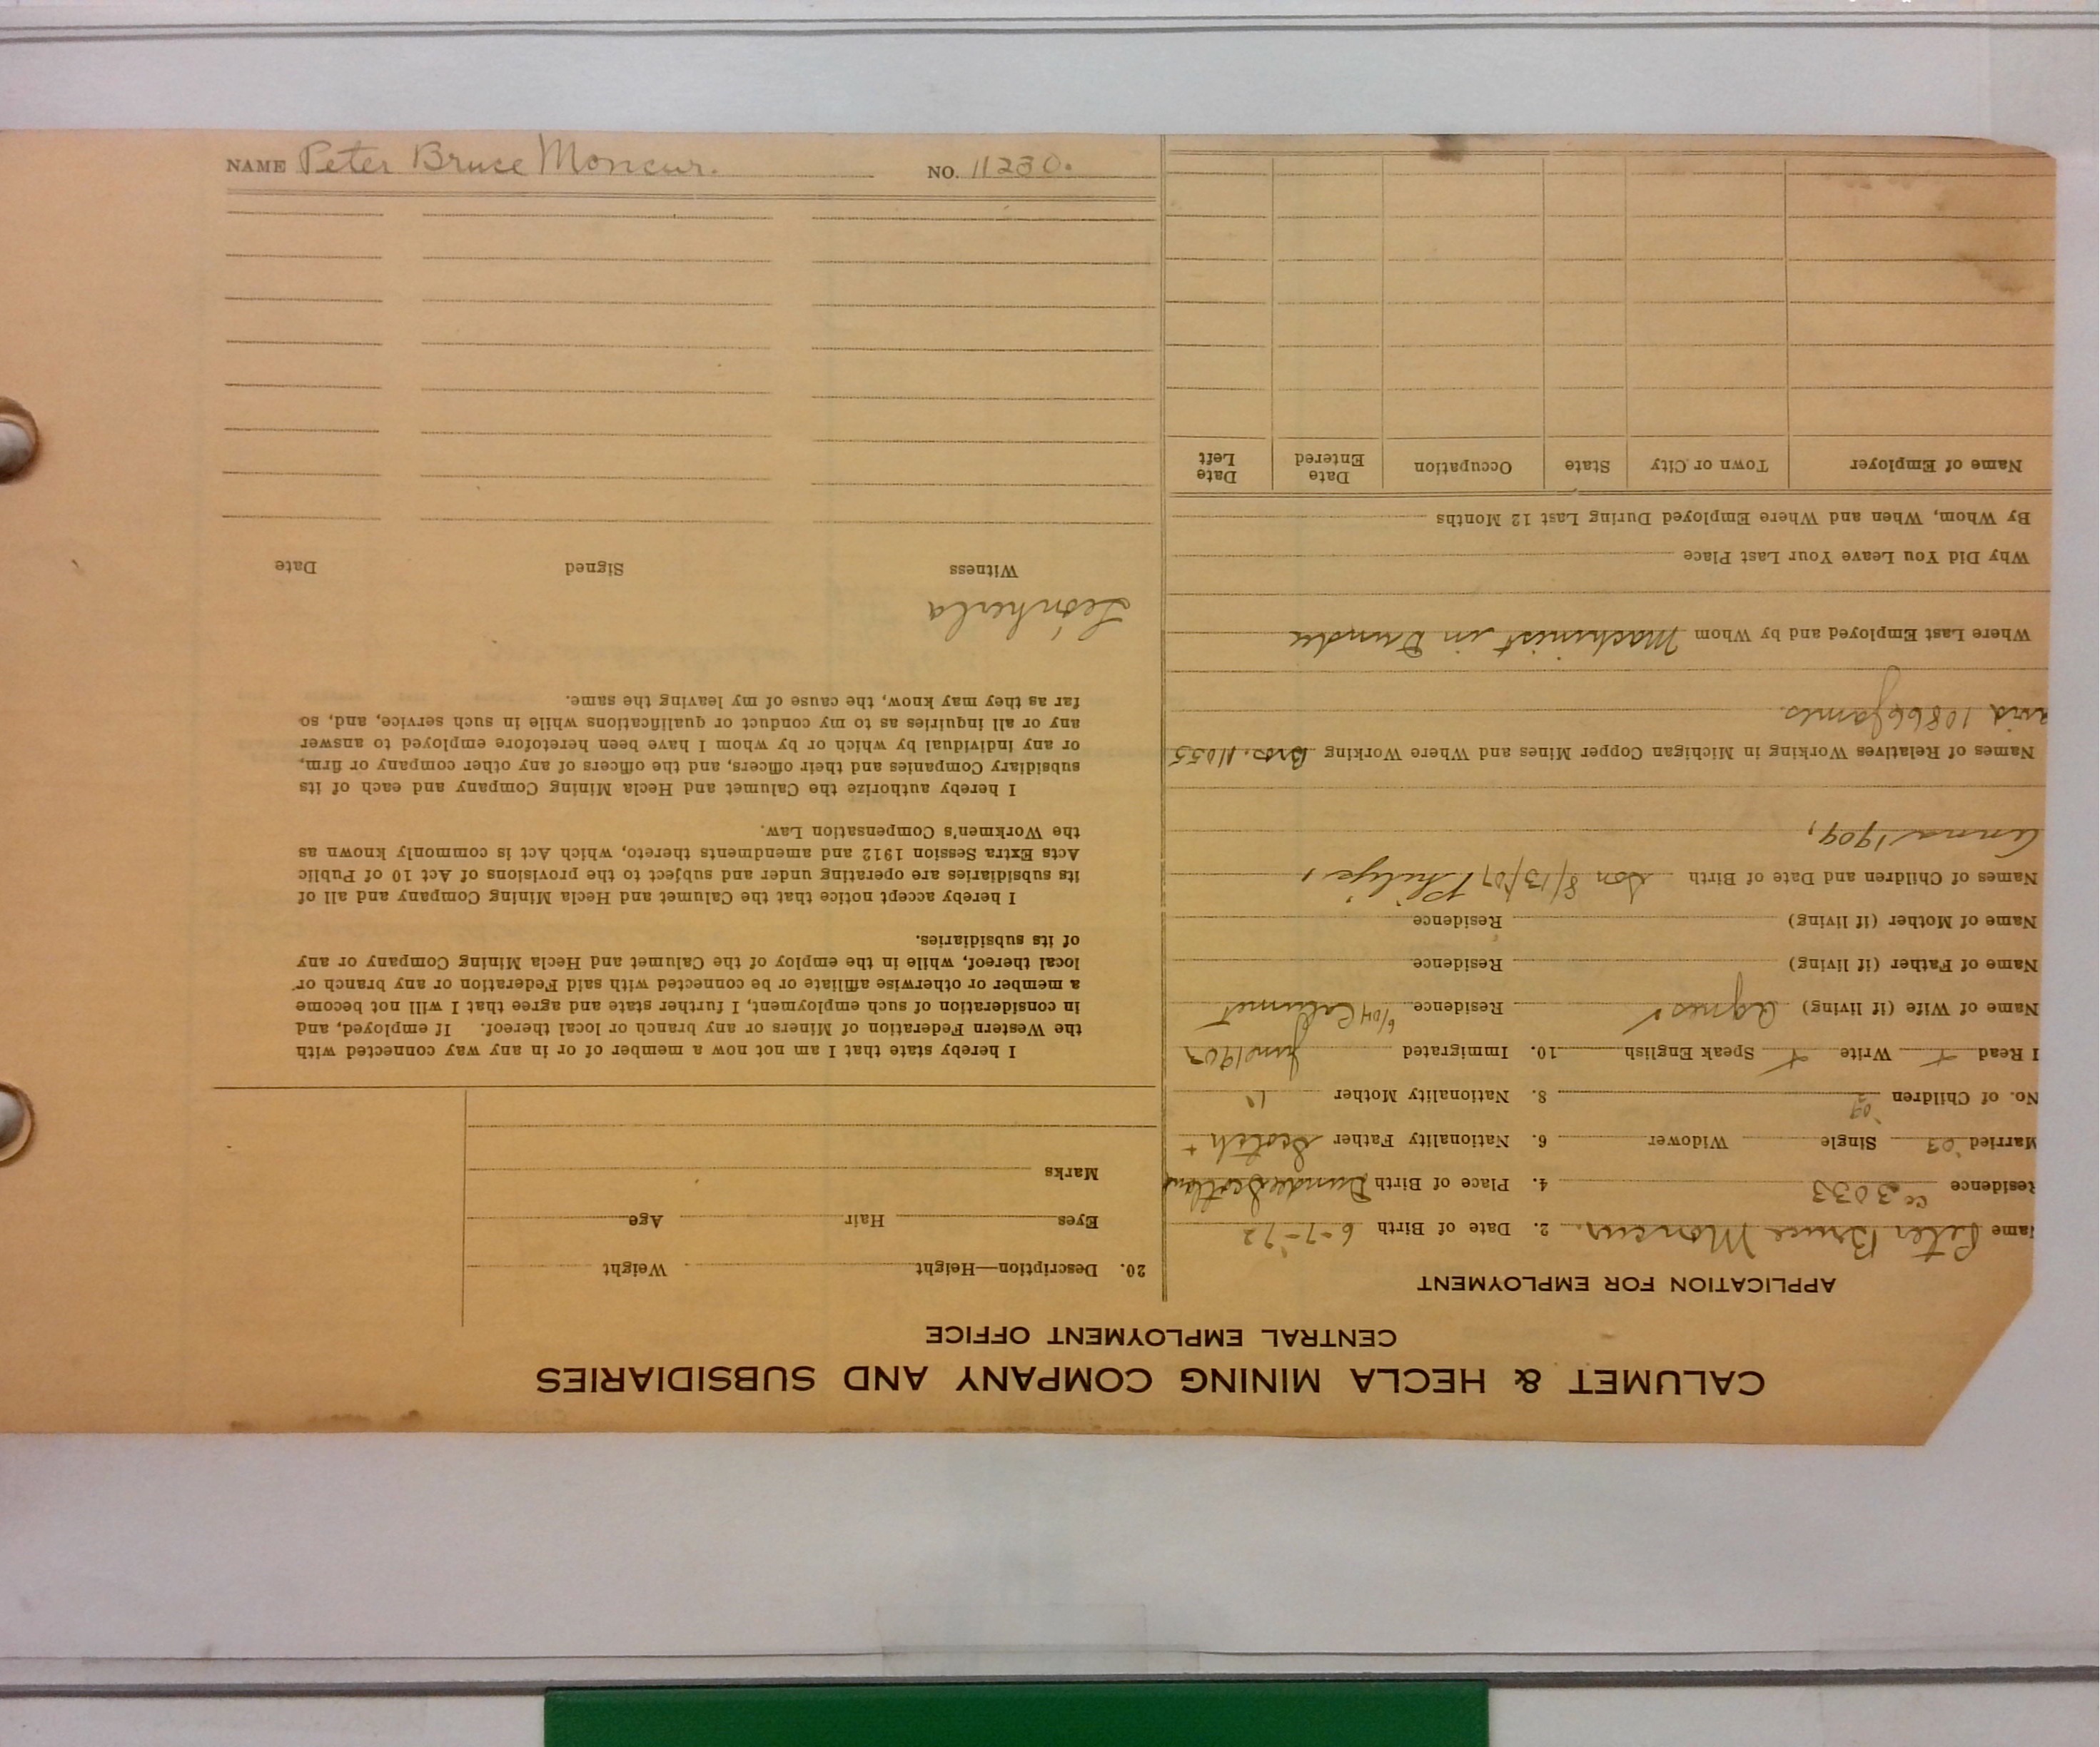 NAME Peter Bruce Moncur. NO. 11230.
CALUMET & HECLA MINING COMPANY AND SUBSIDIARIES
CENTRAL EMPLOYMENT OFFICE
APPLICATION FOR EMPLOYMENT
ame Peter Bruce Moncur. 2. Date of Birth 6-7-'72
Residence cc 3033 4. Place of Birth Dundee Scotland
Married '03 Single Widower 6. Nationality Father Scotch +
No. of Children 8. Nationality Mother "
I Read + Write + Speak English 10. Immigrated June 1907
Name of Wife (if living) Agnes Residence 6/04 Calumet
Name of Father (if living) Residence
Name of Mother (if living) Residence
Names of Children and Date of Birth Son 8/13/07 Philip,
Anna 1909,
Names of Relatives Working in Michigan Copper Mines and Where Working Bros. 11055
avid 10866 James
Where Last Employed and by Whom Machinist in Dundee
Why Did You Leave Your Last Place
By Whom, When and Where Employed During Last 12 Months
Name of Employer Town or City State Occupation Date Entered Date Left
20. Description—Height Weight
Eyes Hair Age
Marks
I hereby state that I am not now a member of or in any way connected with
the Western Federation of Miners or any branch or local thereof. If employed, and
in consideration of such employment, I further state and agree that I will not become
a member or otherwise affiliate or be connected with said Federation or any branch or
local thereof, while in the employ of the Calumet and Hecla Mining Company or any
of its subsidiaries.
I hereby accept notice that the Calumet and Hecla Mining Company and all of
its subsidiaries are operating under and subject to the provisions of Act 10 of Public
Acts Extra Session 1912 and amendments thereto, which Act is commonly known as
the Workmen's Compensation Law.
I hereby authorize the Calumet and Hecla Mining Company and each of its
subsidiary Companies and their officers, and the officers of any other company or firm,
or any individual by which or by whom I have been heretofore employed to answer
any or all inquiries as to my conduct or qualifications while in such service, and, so
far as they may know, the cause of my leaving the same.
Witness Signed Date